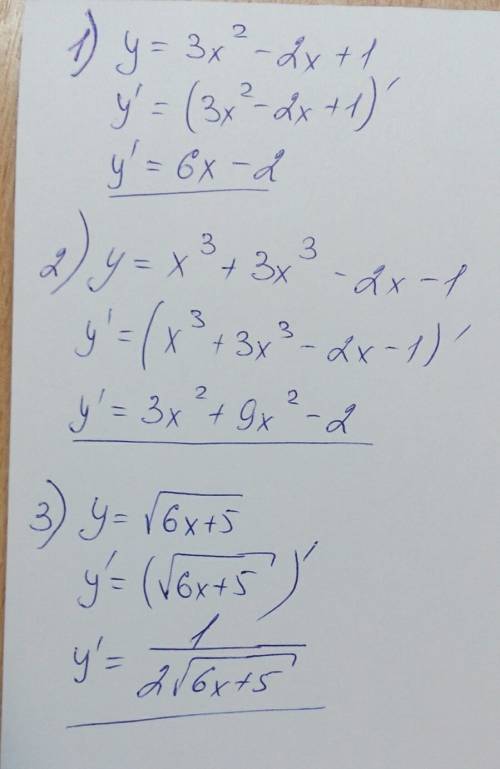 1) y = 3x² - 2x + 1
y' = (3x² - 2x + 1)'
y' = 6x - 2
2) y = x³ + 3x³ - 2x - 1
y' = (x³ + 3x³ - 2x - 1)'
y' = 3x² + 9x² - 2
3) y = √(6x+5)
y' = (√(6x+5))'
y' = 1/(2√(6x+5))